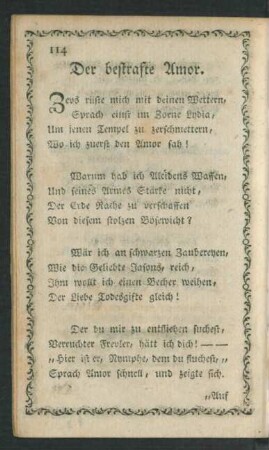 114
Der bestrafte Amor.
Zevs rüste mich mit deinen Wettern,
Sprach einst im Zorne Lydia,
Um jenen Tempel zu zerschmettern,
Wo ich zuerst den Amor sah!
Warum hab ich Alcidens Waffen,
Und seines Armes Stärke nicht,
Der Erde Rache zu verschaffen
Von diesem stolzen Bösewicht?
Wär ich an schwarzen Zaubereyen,
Wie die Geliebte Jasons, reich,
Ihm wollt ich einen Becher weihen,
Der Liebe Todesgifte gleich!
Der du mir zu entfliehen suchest,
Verruchter Frevler, hätt ich dich! — —
„Hier ist er, Nymphe, dem du fluchest,„
Sprach Amor schnell, und zeigte sich.
„Auf